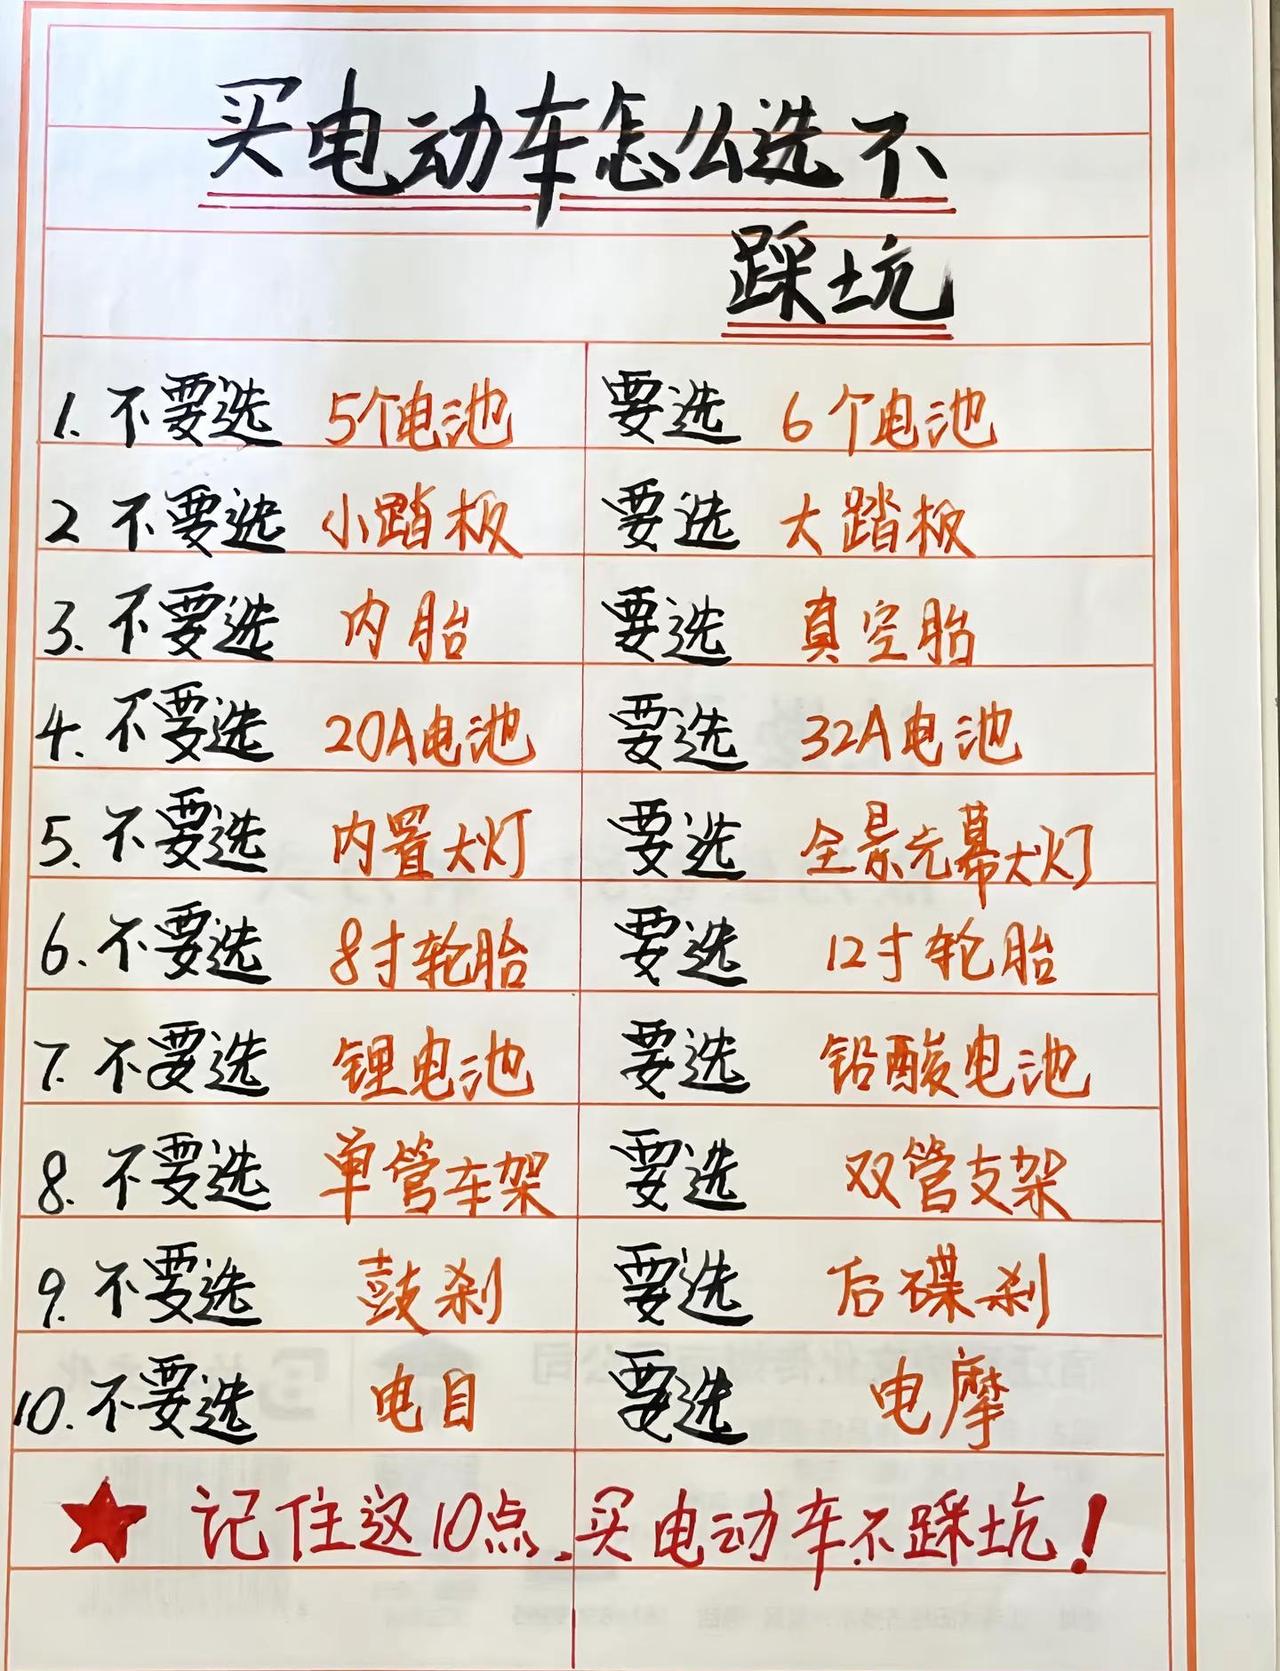 买电动车怎么选不
踩坑
1. 不要选 5个电池 要选 6个电池
2 不要选 小踏板 要选 大踏板
3. 不要选 内胎 要选 真空胎
4. 不要选 20A电池 要选 32A电池
5. 不要选 内置大灯 要选 全景光幕大灯
6. 不要选 8寸轮胎 要选 12寸轮胎
7. 不要选 锂电池 要选 铅酸电池
8. 不要选 单管车架 要选 双管支架
9. 不要选 鼓刹 要选 后碟刹
10. 不要选 电自 要选 电摩
★ 记住这10点,买电动车不踩坑!